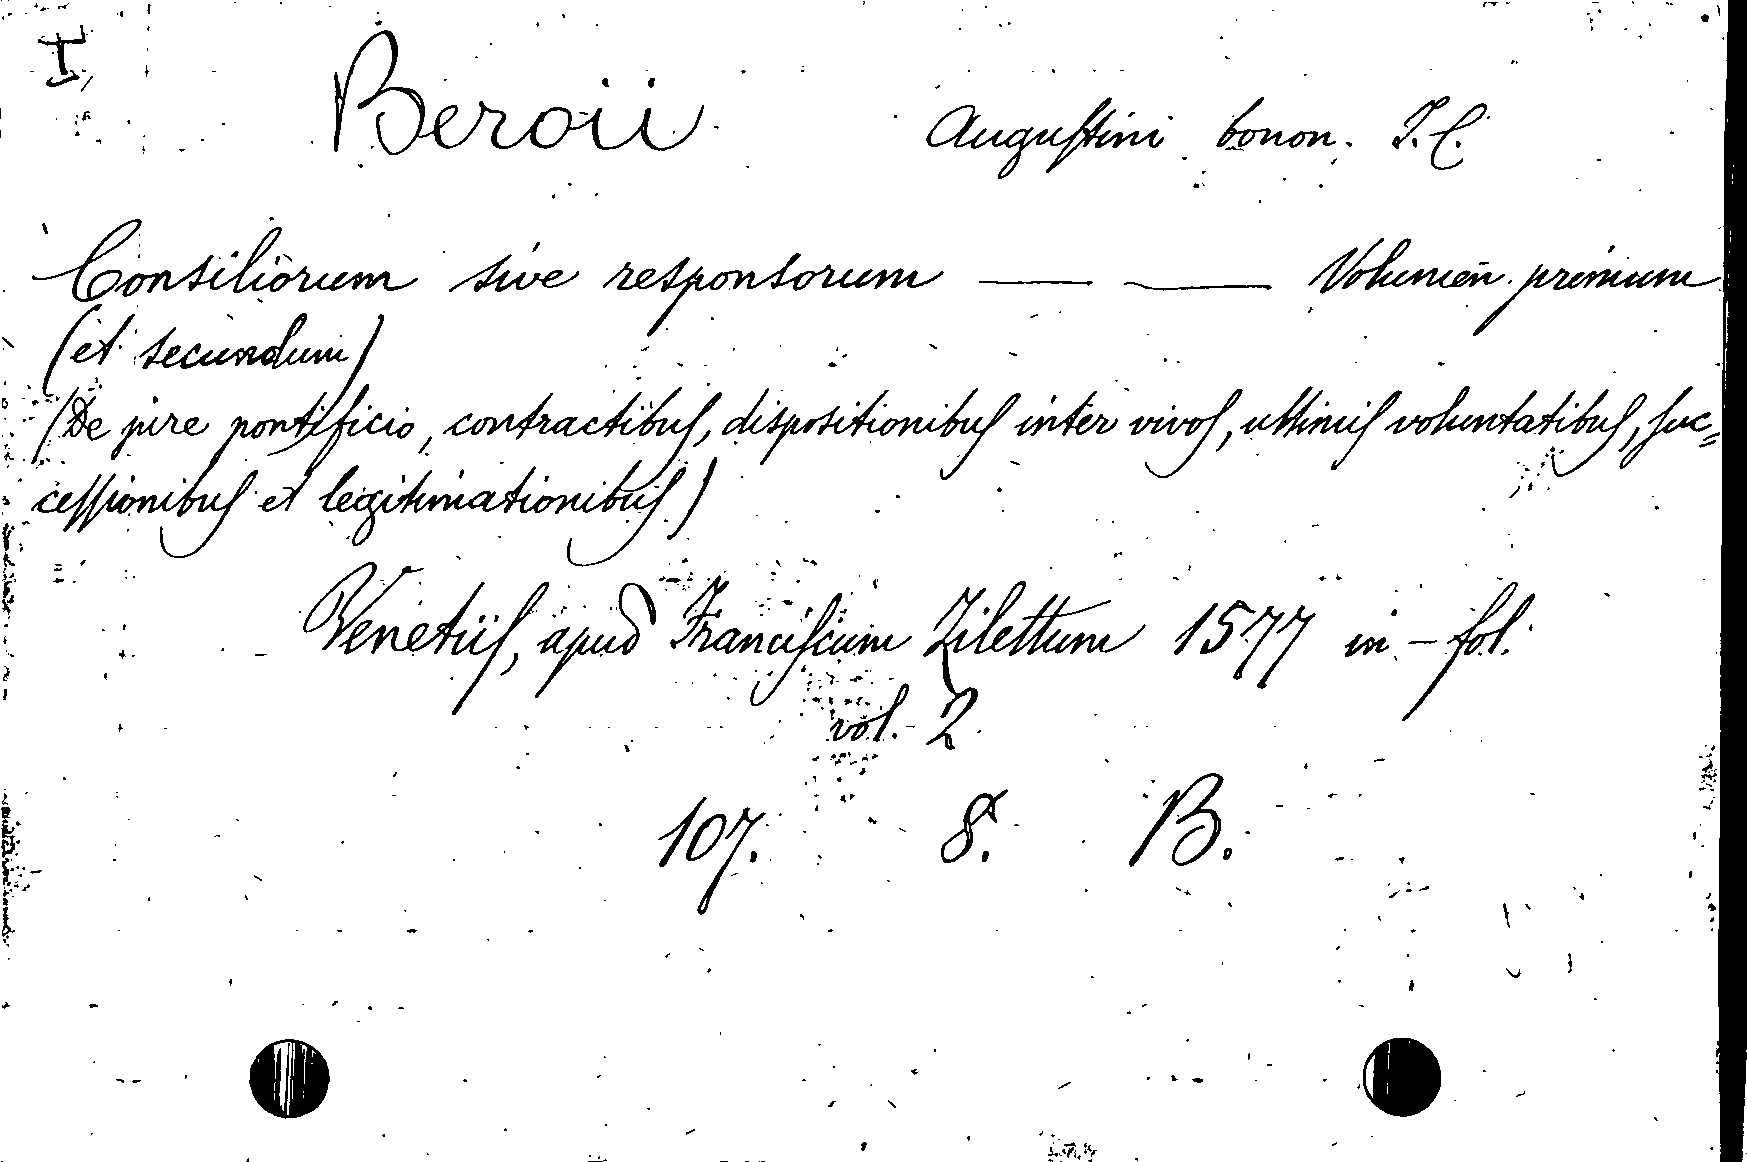 I
Beroii Augustini bonon. I. C.
Consiliorum sive responsorum — — Volumen primum
(et secundum)
(De jure pontificio, contractibus, dispositionibus inter vivos, ultimis voluntatibus, suc=
cessionibus et legitimationibus)
Venetiis, apud Franciscum Zilettum 1577 in-fol.
vol. 2
107. 8. B.